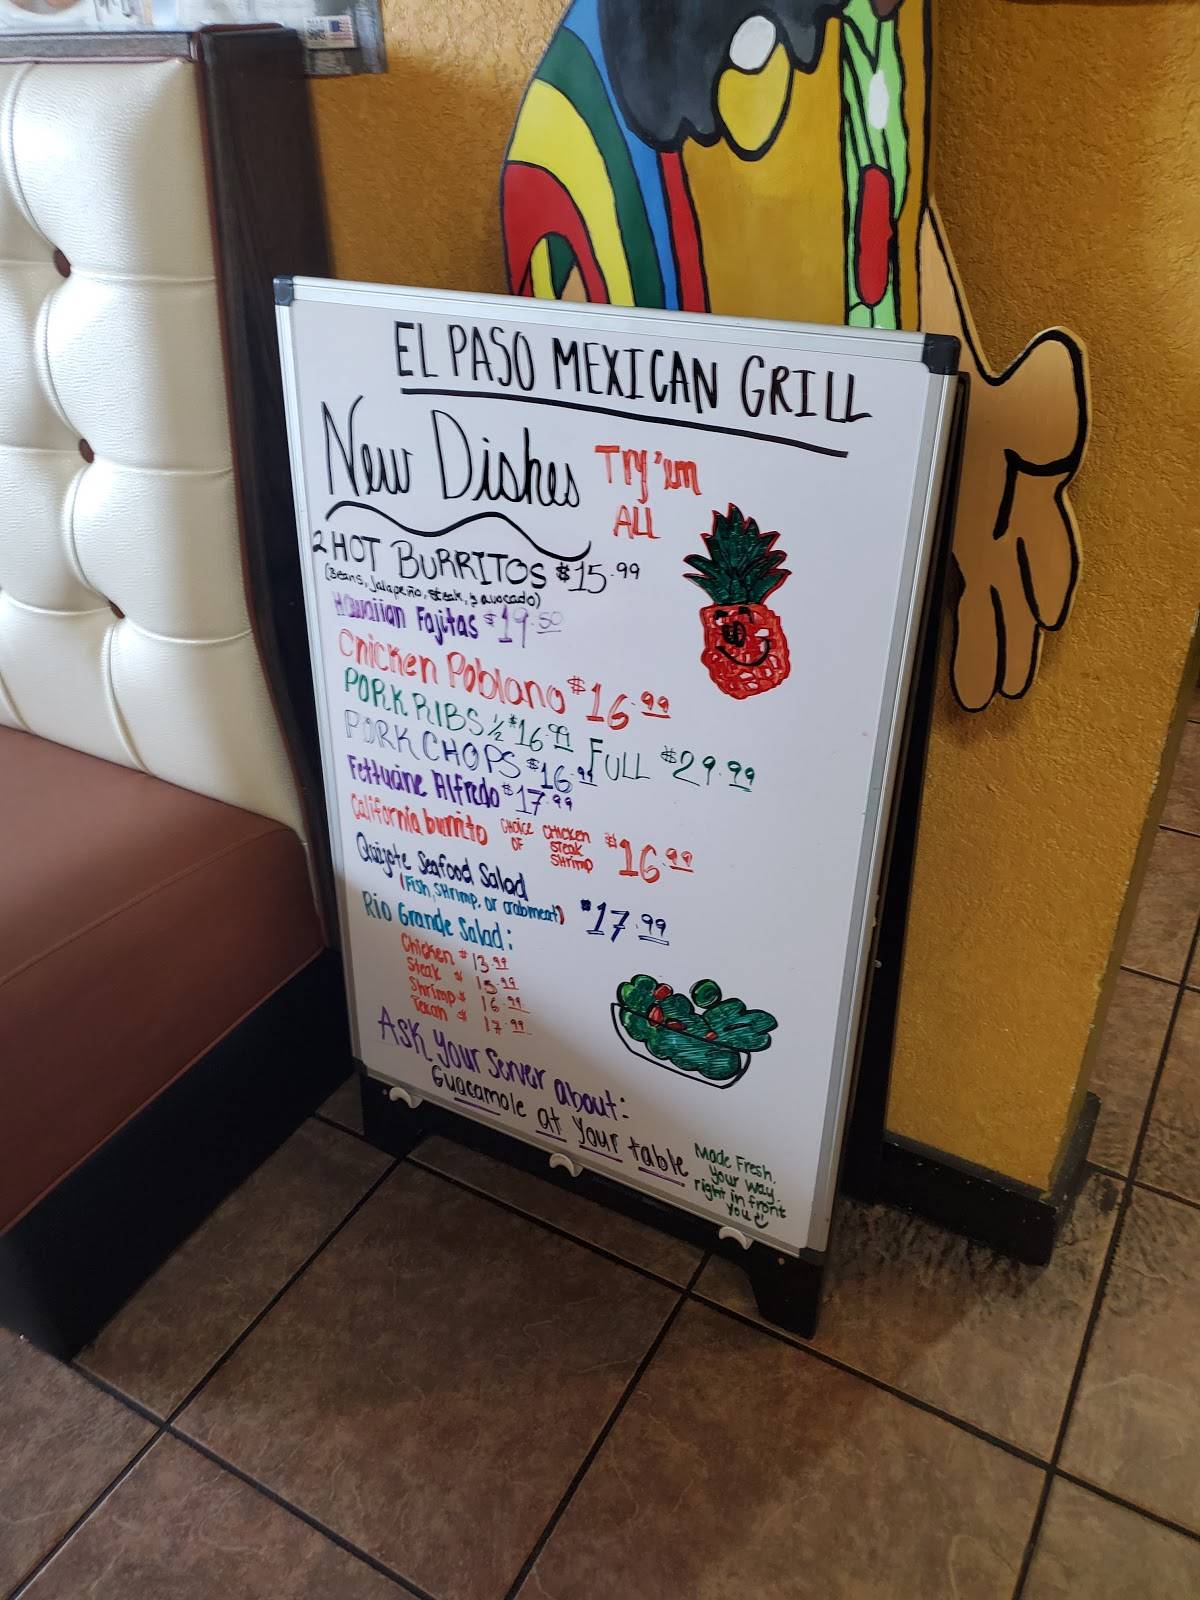 EL PASO MEXICAN GRILL
New Dishes
Try'em
ALL
2 HOT BURRITOS $15.99
(Beans, Jalapeño, steak, y avocado)
Hawaiian Fajitas $19.50
Chicken Poblano $16.99
PORK RIBS 1/2 $16.99 FULL $29.99
PORK CHOPS $16.99
Fettucine Alfredo $17.99
California burrito CHOICE OF CHICKEN steak SHrimp $16.99
Quijote Seafood Salad
(Fish, SHrimp, or crabmeat) $17.99
Rio Grande Salad:
Chicken $13.99
Steak $15.99
Shrimp $16.99
Texan $17.99
Ask Your Server about:
Guacamole at your table
Made Fresh.
Your way.
right in front
you